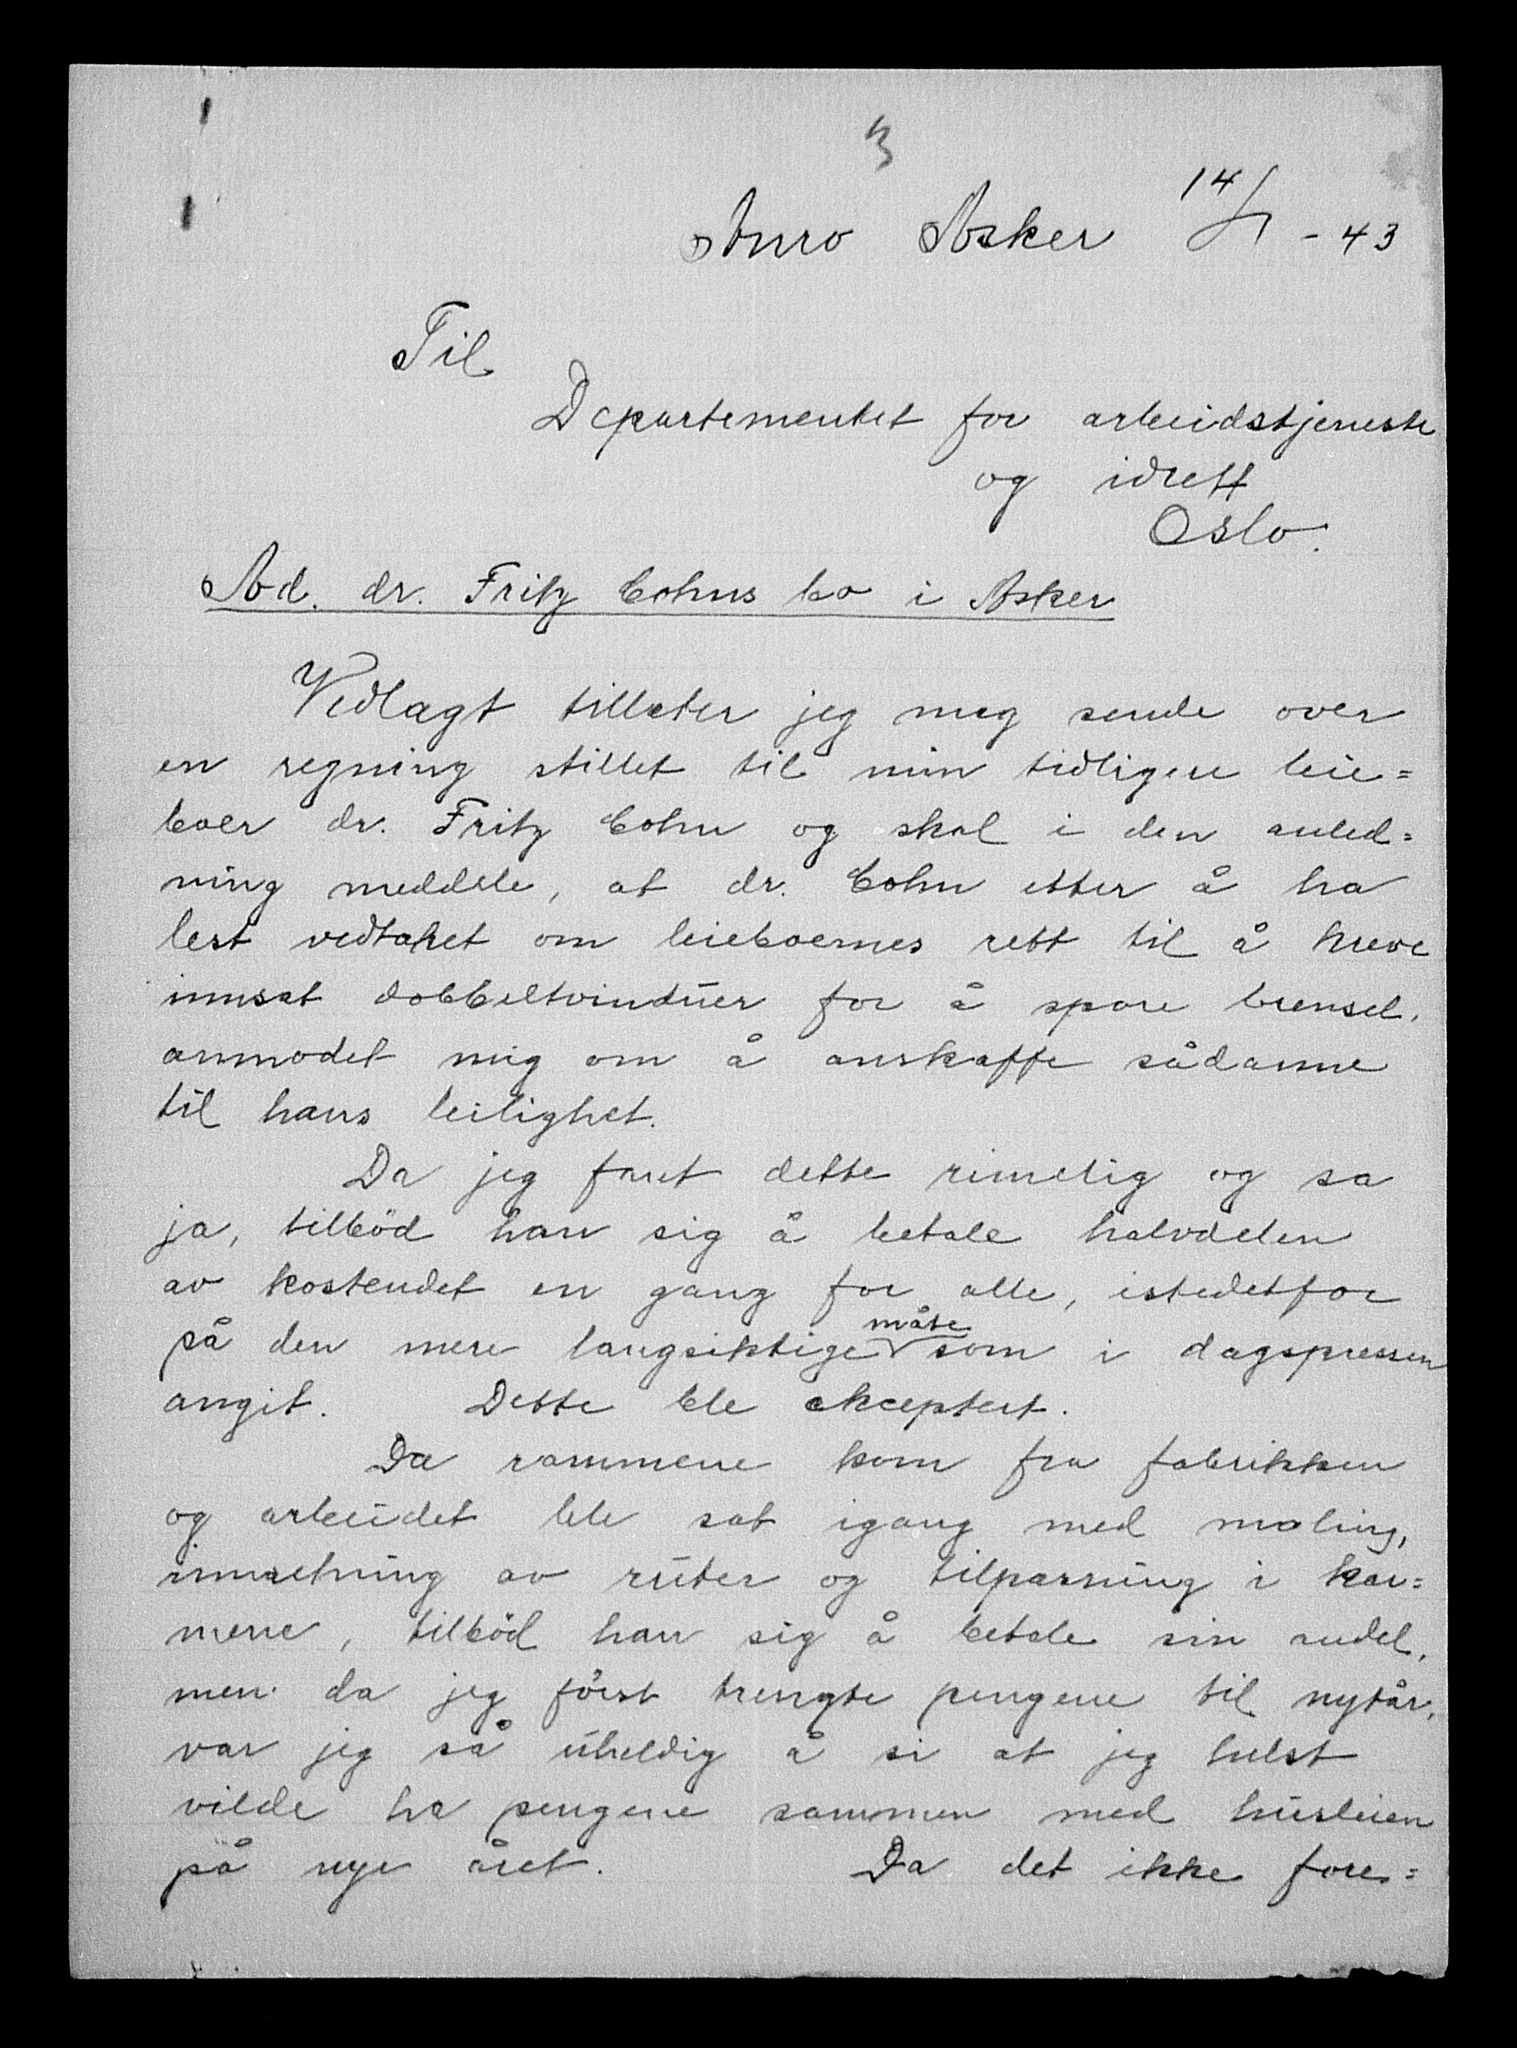 3
Anro Asker 14/1 - 43
Til
Departementet for arbeidstjeneste
og idrett
Oslo.
Ad. dr. Fritz Cohns bo i Asker
Vedlagt tillater jeg meg sende over
en regning stillet til min tidligere leie=
boer dr. Fritz Cohn og skal i den anled=
ning meddele, at dr. Cohn etter å ha
lest vedtaket om leieboernes rett til å kreve
innsat dobbeltvinduer for å spare brensel,
anmodet mig om å anskaffe sådanne
til hans leilighet.
Da jeg fant dette rimelig og sa
ja, tilbød han sig å betale halvdelen
av kostendet en gang for alle, istedetfor
på den mere langsiktige måte som i dagspressen
angit. Dette ble akceptert.
Da rammene kom fra fabrikken
og arbeidet ble sat igang med maling,
innsetning av ruter og tilpasning i kar=
mene, tilbød han sig å betale sin andel,
men da jeg först trengte pengene til nytår,
var jeg så uheldig å si at jeg helst
vilde ha pengene sammen med husleien
på nye året. Da det ikke fores=